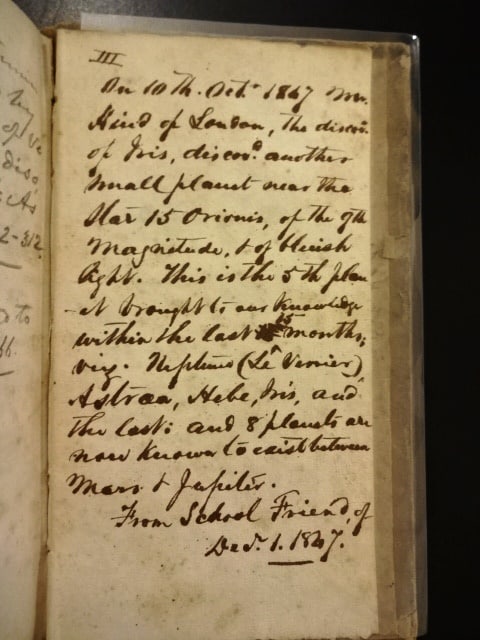 III
On 10th. Octr. 1847 Mr.
Hind of London, the discovr.
of Iris, discovd. another
small planet near the
Star 15 Orionis, of the 9th
Magnitude, & of bluish
light. This is the 5th plan
-et brought to our Knowledge
within the last 15 months;
viz. Neptune (Le Verrier)
Astraa, Hebe, Iris, and
the last: and 8 planets are
now known to exist between
Mars & Jupiter.
From School Friend, of
Decr. 1. 1847.
my
of
disc
As
2-312
to